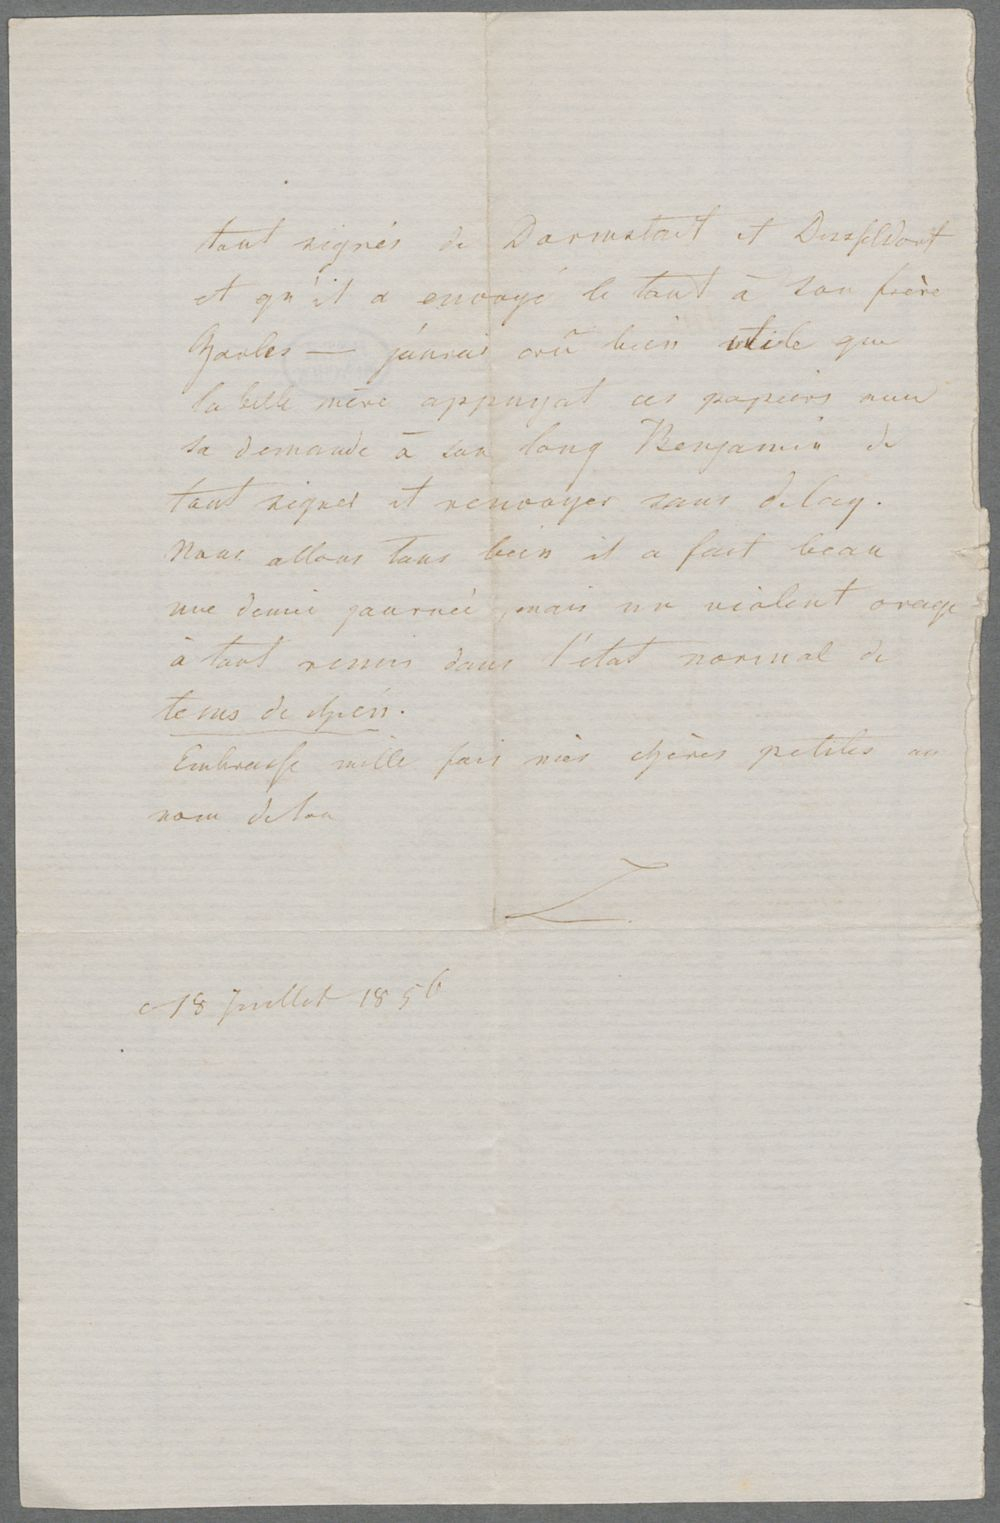 tout signés de Darmstatt et Dusseldorf
et qu'il a envoyé le tout à son frère
Charles — j'aurai crû bien utile que
la belle mère appuyat ces papiers
sa demande à son long Benjamin de
tout signer et renvoyer sans delay.
Nous allons tous bien il a fait beau
une demie journée mais un violent orage
à tout remis dans l'etat normal de
tems de chien.
Embrasse mille fois mes chères petites au
nom de ton
L
18 Juillet 1856